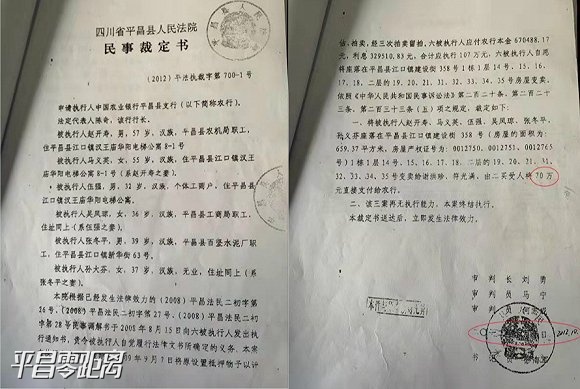 四川省平昌县人民法院
民事裁定书
（2012）平法执裁字第700-1号
申请执行人中国农业银行平昌县支行（以下简称农行）。
法定代表人陈奇，该行行长。
被执行人赵开寿，男，57岁，汉族，平昌县农机局职工，
住平昌县江口镇汉王庙华阳电梯公寓8-1号
被执行人马义英，女，55岁，汉族，住平昌县江口镇汉王
庙华阳电梯公寓8-1号（系赵开寿之妻）。
被执行人伍强，男，32岁，汉族，个体工商户，住平昌县
江口镇汉王庙华阳电梯公寓。
被执行人吴凤琼，女，36岁，汉族，平昌县工商局职工，
住址同上（系伍强之妻）。
被执行人张冬平，男，39岁，汉族，平昌县百坚水泥厂职
工，住平昌县江口镇新华街63号。
被执行人补大芬，女，37岁，汉族，无业，住址同上（系
张冬平之妻）。
本院根据已经发生法律效力的（2008）平昌法民二初字第
26号、（2008）平昌法民二初字第27号、（2008）平昌法民二初
字第28号民事调解书于2008年8月15日向六被执行人发出执
行通知书，责令被执行人自觉履行法律文书所确定的义务，本案
9年9月7日将原设置抵押物予以评
平昌零距离
估、拍卖，经三次拍卖留拍，六被执行人应付农行本金670488.17
元，利息329510.83元，合计应执行107万元，六被执行人自愿
将座落在平昌县江口镇建设街358号1栋1层14号、15、16、
17、18、二层的19、20、21、31、32、33、34、35号房屋变卖。
依照《中华人民共和国民事诉讼法》第二百二十一条、第二百二
十三条、第二百三十三条（五）项之规定，裁定如下：
一、将被执行人赵开寿、马义英、伍强、吴凤琼、张冬平、
补义芬座落在平昌县江口镇建设街358号（房屋的面积为：
659.37平方米，房屋产权证号为：0012750、0012751、0012765
号）1栋1层14号、15、16、17、18、二层的19、20、21、31、
32、33、34、35号变卖给谢洪珍、符光满、由二买受人将70万
元直接支付给农行。
二、该三案再无执行能力，本案终结执行。
本裁定书送达后，立即发生法律效力。
审判长刘勇
审判员马宁
审判员
书记员